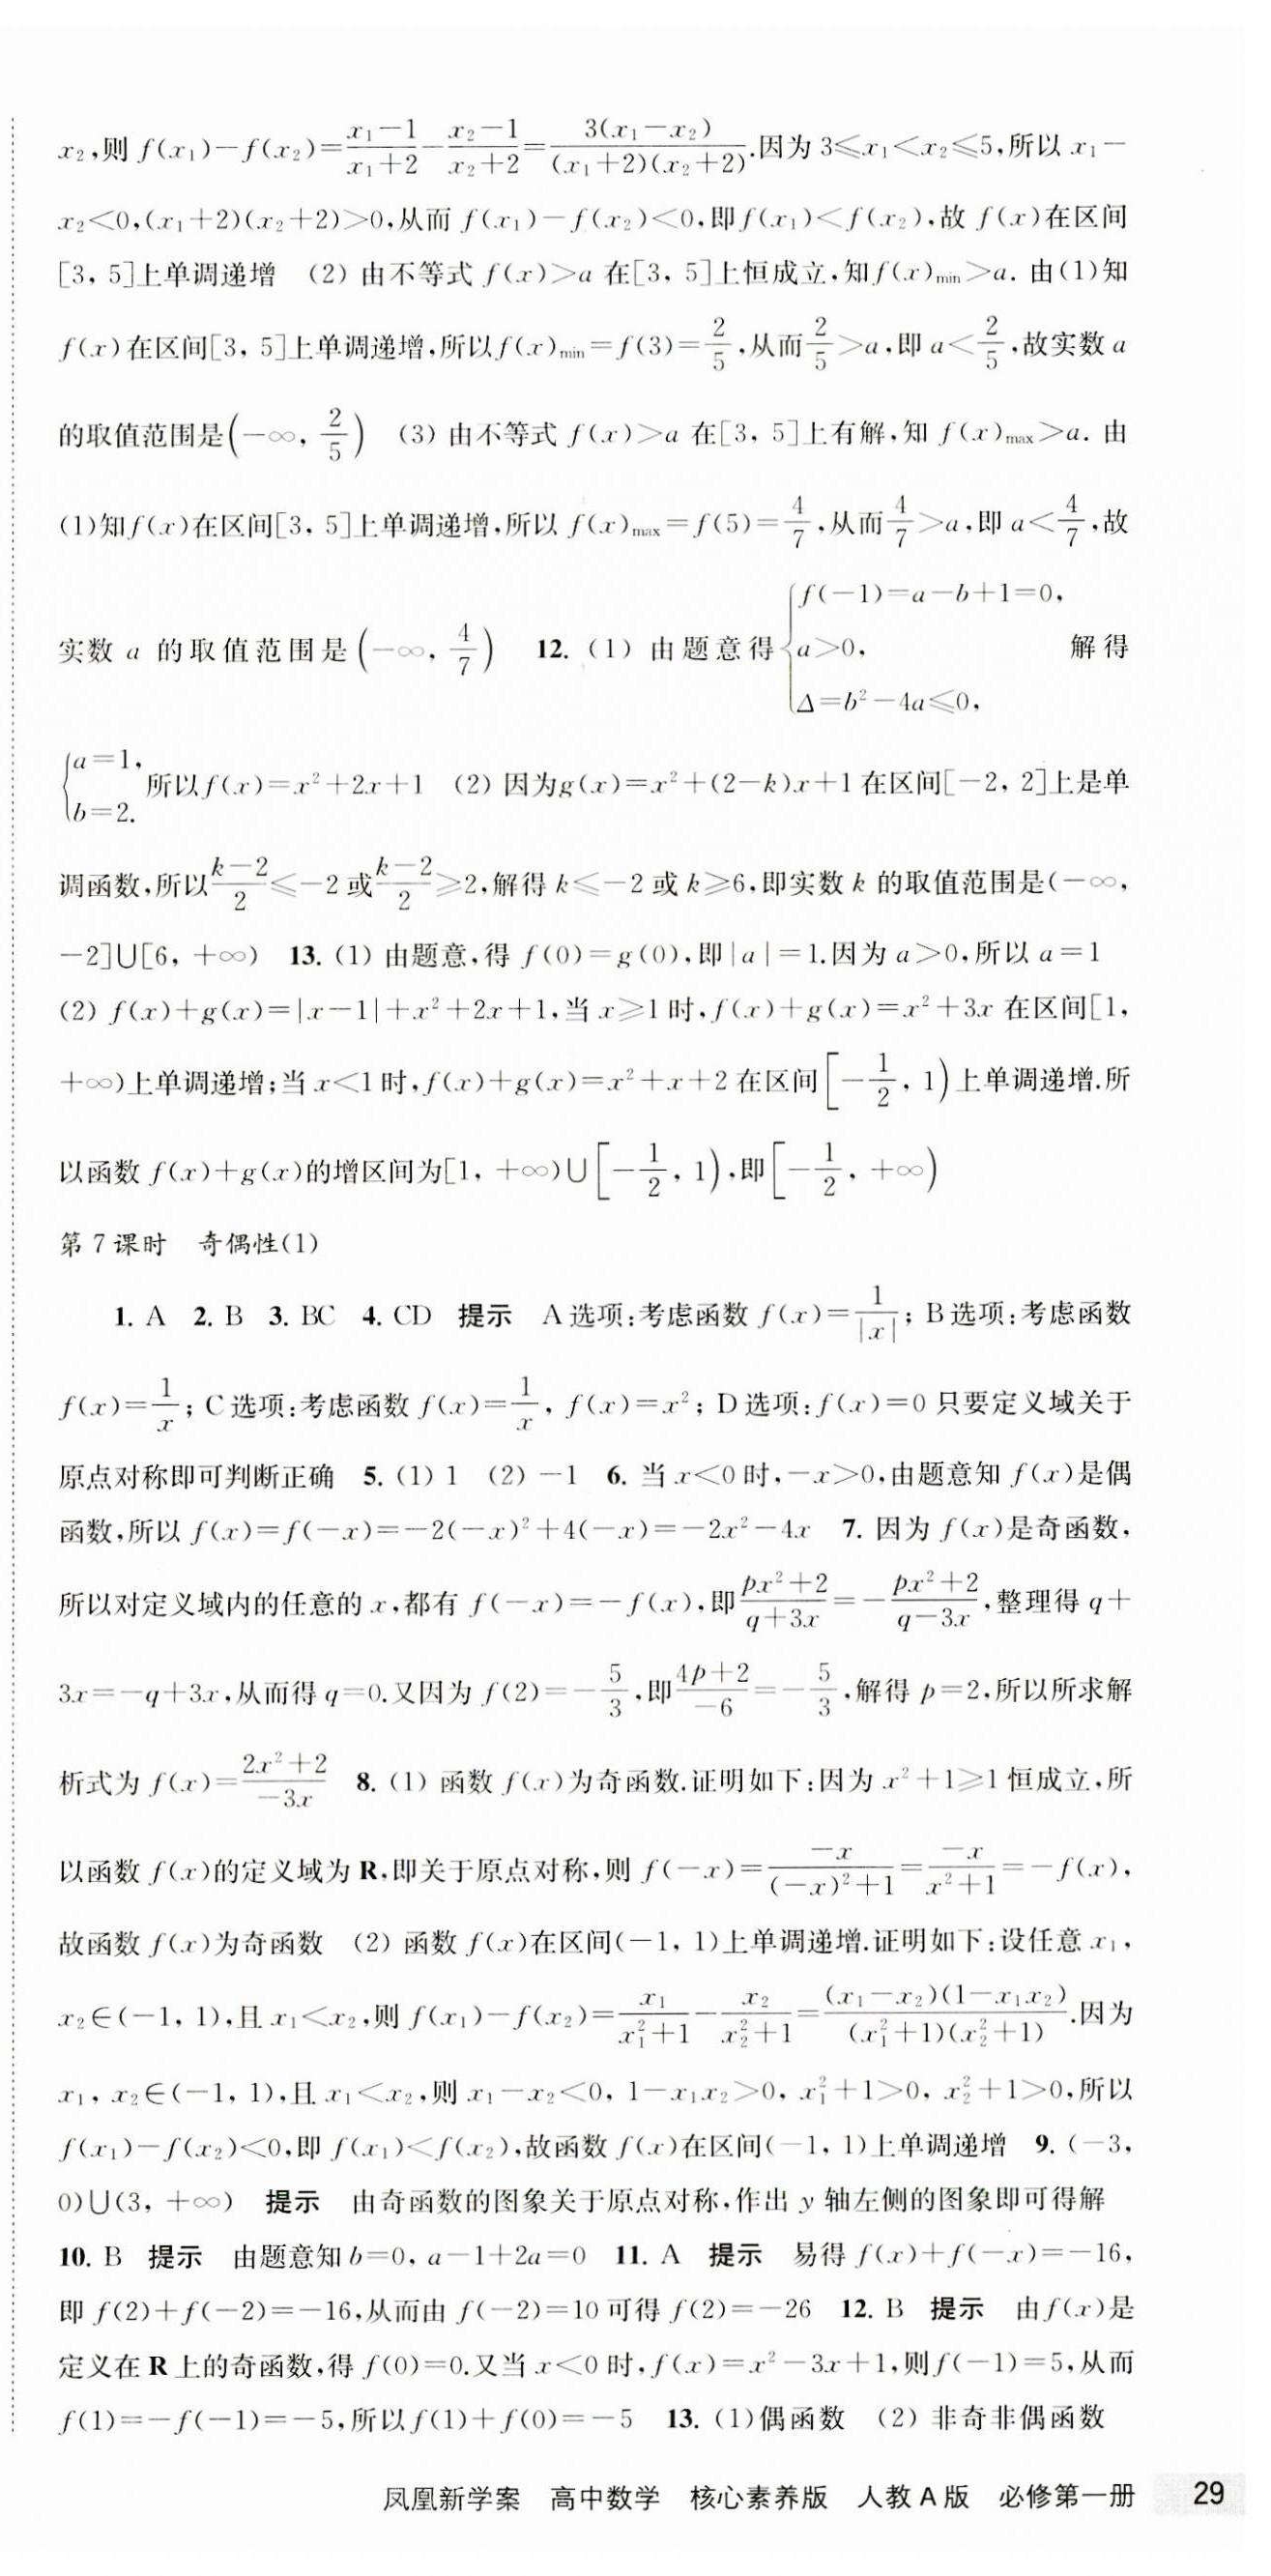 x₂,则 f(x₁)-f(x₂)=\frac{x₁-1}{x₁+2}-\frac{x₂-1}{x₂+2}=\frac{3(x₁-x₂)}{(x₁+2)(x₂+2)}.因为 3≤x₁<x₂≤5,所以 x₁-
x₂<0,(x₁+2)(x₂+2)>0,从而 f(x₁)-f(x₂)<0,即f(x₁)<f(x₂),故 f(x)在区间
[3, 5]上单调递增 (2) 由不等式 f(x)>a 在[3, 5]上恒成立,知f(x)ₘᵢₙ>a. 由(1)知
f(x)在区间[3, 5]上单调递增,所以f(x)ₘᵢₙ=f(3)=\frac{2}{5},从而\frac{2}{5}>a,即 a<\frac{2}{5},故实数 a
的取值范围是(-∞, \frac{2}{5}) (3) 由不等式 f(x)>a 在[3, 5]上有解,知 f(x)ₘₐₓ>a. 由
(1)知f(x)在区间[3, 5]上单调递增,所以 f(x)ₘₐₓ=f(5)=\frac{4}{7},从而\frac{4}{7}>a,即 a<\frac{4}{7},故
实数 a 的取值范围是(-∞, \frac{4}{7}) 12. (1) 由题意得{f(-1)=a-b+1=0, a>0, Δ=b²-4a≤0, 解得
{a=1, b=2. 所以f(x)=x²+2x+1 (2) 因为g(x)=x²+(2-k)x+1在区间[-2, 2]上是单
调函数,所以\frac{k-2}{2}≤-2或\frac{k-2}{2}≥2,解得 k≤-2或 k≥6,即实数 k 的取值范围是(-∞,
-2]∪[6, +∞) 13. (1) 由题意,得 f(0)=g(0),即|a|=1.因为 a>0,所以 a=1
(2) f(x)+g(x)=|x-1|+x²+2x+1,当 x≥1时,f(x)+g(x)=x²+3x 在区间[1,
+∞)上单调递增;当 x<1时,f(x)+g(x)=x²+x+2在区间[-\frac{1}{2}, 1)上单调递增.所
以函数 f(x)+g(x)的增区间为[1, +∞)∪[-\frac{1}{2}, 1),即[-\frac{1}{2}, +∞)
第7课时 奇偶性(1)
1. A 2. B 3. BC 4. CD 提示 A选项:考虑函数 f(x)=\frac{1}{|x|}; B选项:考虑函数
f(x)=\frac{1}{x}; C选项:考虑函数 f(x)=\frac{1}{x}, f(x)=x²; D选项:f(x)=0 只要定义域关于
原点对称即可判断正确 5. (1) 1 (2) -1 6. 当 x<0时,-x>0,由题意知 f(x)是偶
函数,所以 f(x)=f(-x)=-2(-x)²+4(-x)=-2x²-4x 7. 因为 f(x)是奇函数,
所以对定义域内的任意的 x,都有 f(-x)=-f(x),即\frac{px²+2}{q+3x}=-\frac{px²+2}{q-3x},整理得 q+
3x=-q+3x,从而得 q=0.又因为 f(2)=-\frac{5}{3},即\frac{4p+2}{-6}=-\frac{5}{3},解得 p=2,所以所求解
析式为 f(x)=\frac{2x²+2}{-3x} 8. (1) 函数 f(x)为奇函数.证明如下:因为 x²+1≥1恒成立,所
以函数 f(x)的定义域为 R,即关于原点对称,则 f(-x)=\frac{-x}{(-x)²+1}=\frac{-x}{x²+1}=-f(x),
故函数 f(x)为奇函数 (2) 函数 f(x)在区间(-1, 1)上单调递增.证明如下:设任意 x₁,
x₂∈(-1, 1),且 x₁<x₂,则 f(x₁)-f(x₂)=\frac{x₁}{x₁²+1}-\frac{x₂}{x₂²+1}=\frac{(x₁-x₂)(1-x₁x₂)}{(x₁²+1)(x₂²+1)}.因为
x₁, x₂∈(-1, 1),且 x₁<x₂,则 x₁-x₂<0, 1-x₁x₂>0, x₁²+1>0, x₂²+1>0,所以
f(x₁)-f(x₂)<0,即 f(x₁)<f(x₂),故函数 f(x)在区间(-1, 1)上单调递增 9. (-3,
0)∪(3, +∞) 提示 由奇函数的图象关于原点对称,作出 y 轴左侧的图象即可得解
10. B 提示 由题意知b=0, a-1+2a=0 11. A 提示 易得 f(x)+f(-x)=-16,
即 f(2)+f(-2)=-16,从而由 f(-2)=10可得 f(2)=-26 12. B 提示 由f(x)是
定义在 R 上的奇函数,得 f(0)=0.又当 x<0时,f(x)=x²-3x+1,则f(-1)=5,从而
f(1)=-f(-1)=-5,所以f(1)+f(0)=-5 13. (1)偶函数 (2) 非奇非偶函数
凤凰新学案 高中数学 核心素养版 人教A版 必修第一册 29